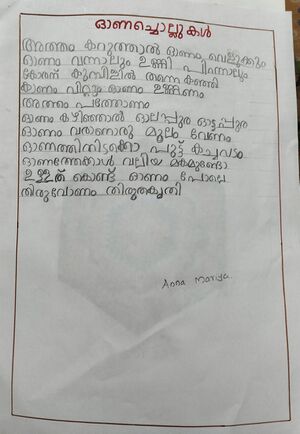 ഓണച്ചൊല്ലുകൾ
അത്തം കറുത്താൽ ഓണം വെളുക്കും
ഓണം വന്നാലും ഉണ്ണി പിറന്നാലും
കോരന് കുമ്പിളിൽ തന്നെ കഞ്ഞി
കാണം വിറ്റും ഓണം ഉണ്ണണം
അത്തം പത്തോണം
ഓണം കഴിഞ്ഞാൽ ഓലപ്പുര ഓട്ടപ്പുര
ഓണം വരാനൊരു മൂലം വേണം
ഓണത്തിനിടക്കൊ പുട്ട് കച്ചവടം
ഓണത്തേക്കാൾ വലിയ മകമുണ്ടോ
ഉള്ളത് കൊണ്ട് ഓണം പോലെ
തിരുവോണം തിരുതകൃതി
Anna Mariya